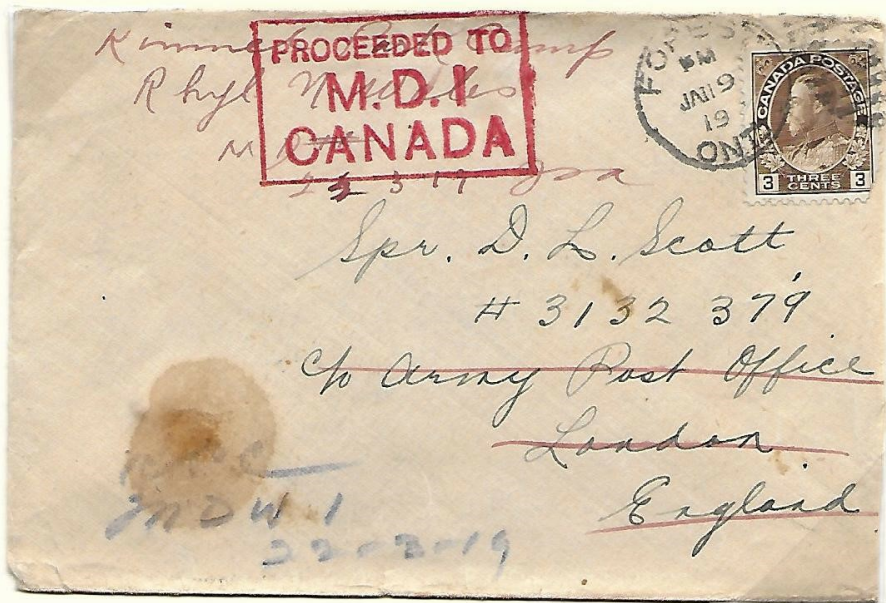 Kinmel Park Camp
Rhyl N. Wales
PROCEEDED TO
M.D.I
CANADA
22 3 19
FOREST
PM
JAN 9
19
ONT
CANADA POSTAGE
3 THREE CENTS 3
Spr. D. L. Scott
# 3132 379
c/o Army Post Office
London
England
MDW 1
22-3-19